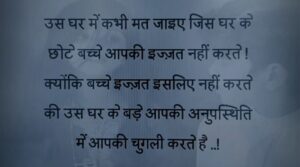 उस घर में कभी मत जाइए जिस घर के
छोटे बच्चे आपकी इज्ज़त नहीं करते !
क्योंकि बच्चे इज्ज़त इसलिए नहीं करते
की उस घर के बड़े आपकी अनुपस्थिति
में आपकी चुगली करते है ..!